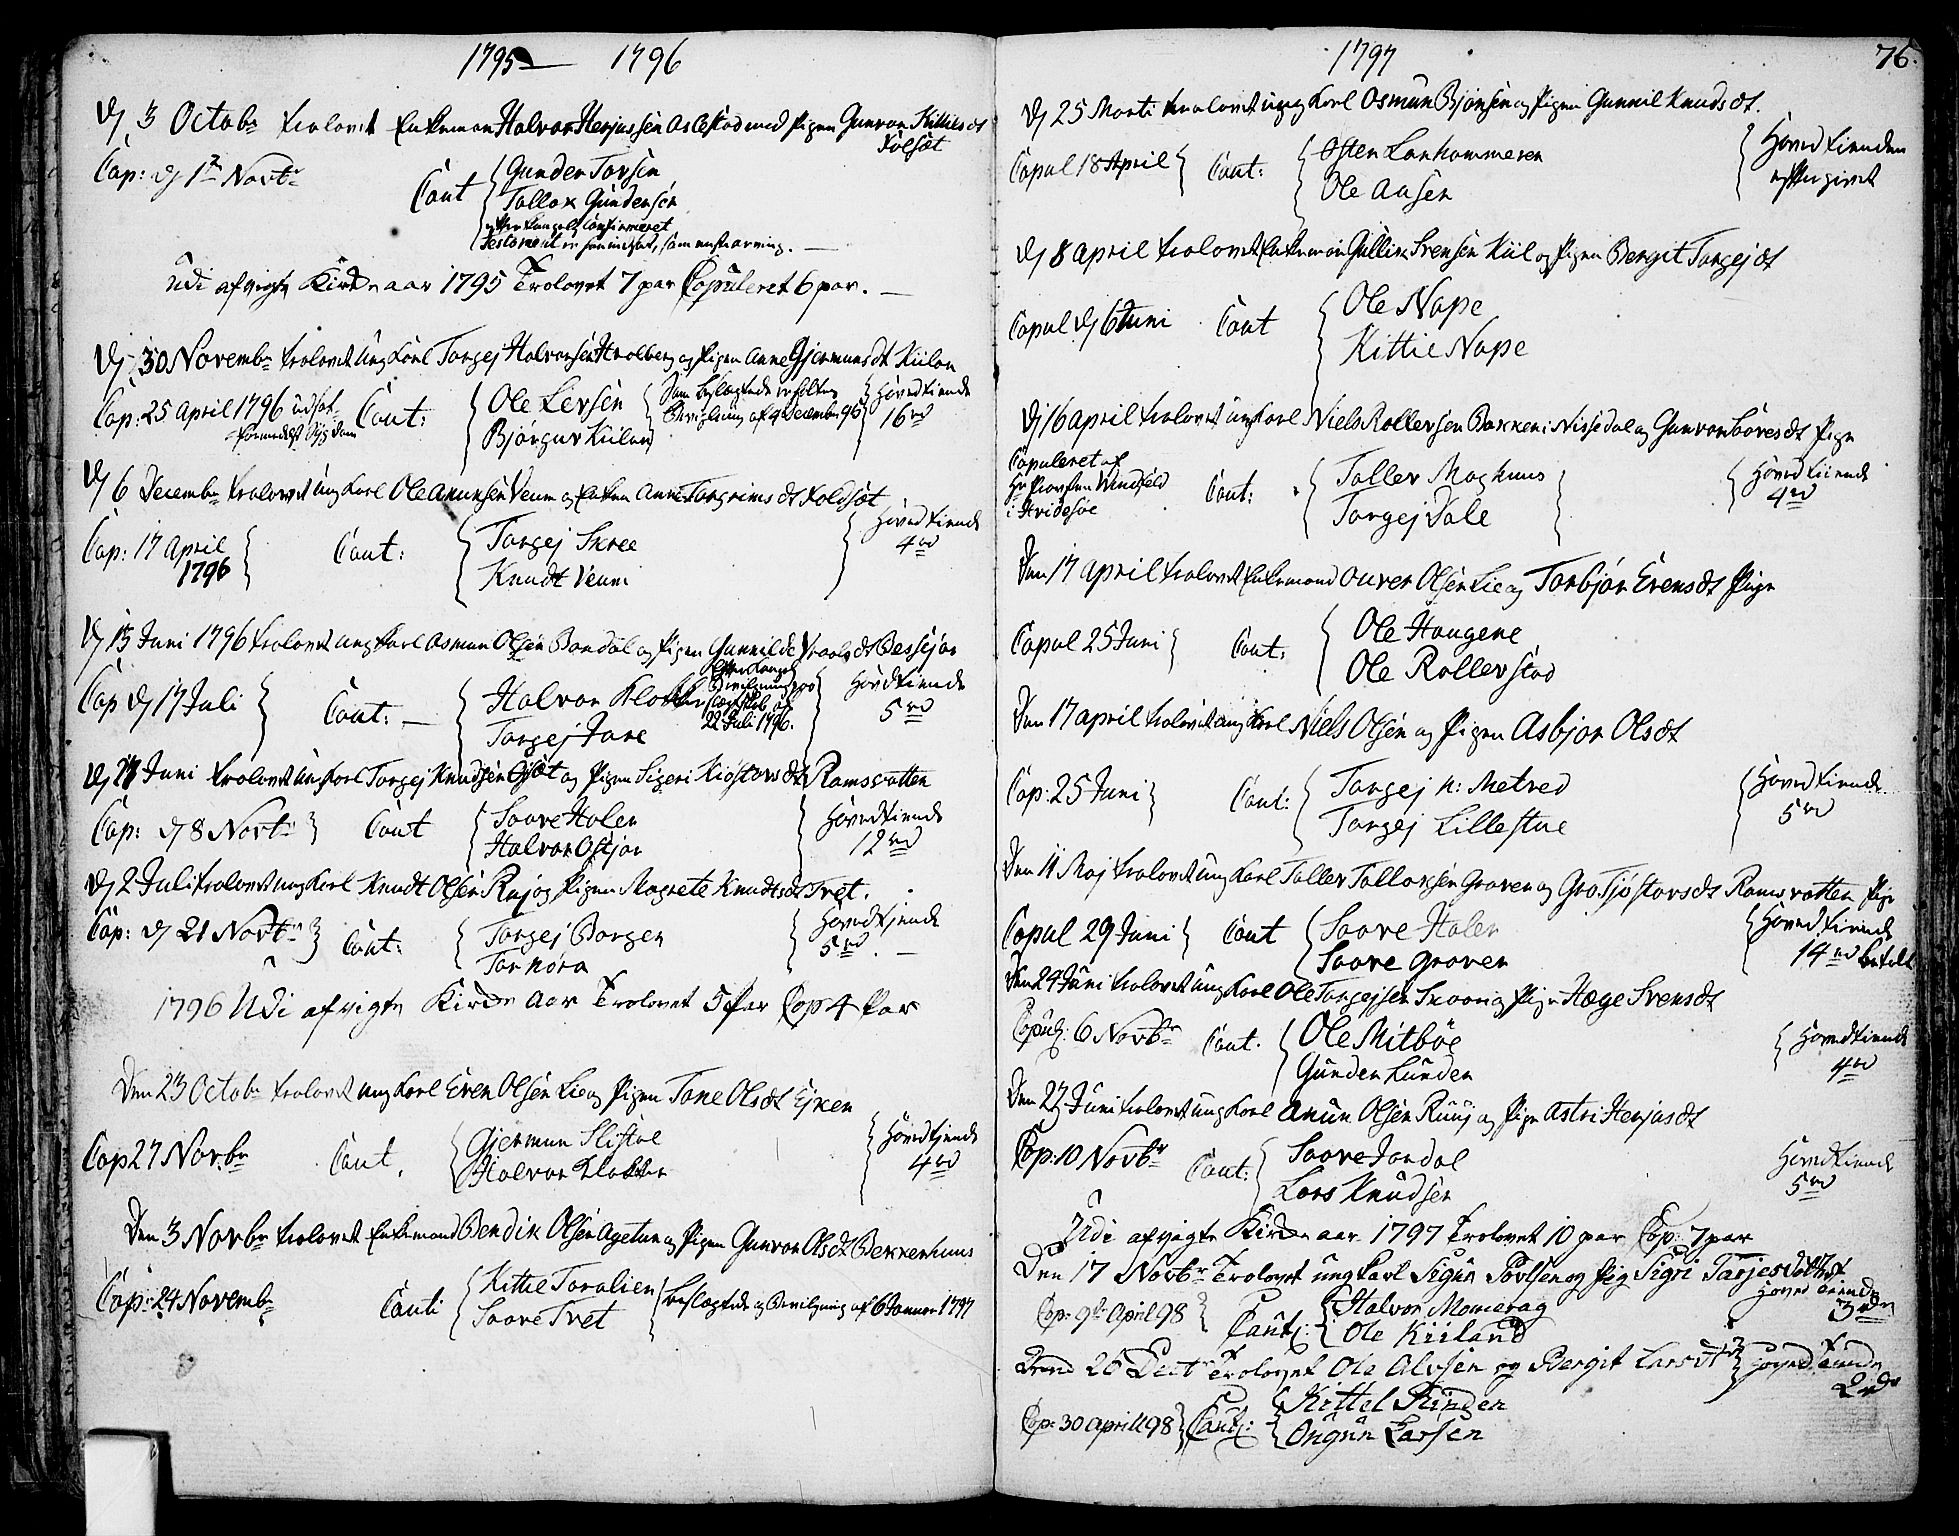 1795 — 1796
Dj 3 Octobr trolovet Enkeman Halvor Herjussen Aslestad med Pigen Gunvor Kittilsdt
Folsæt
Cap: dj 1te Novbr Caut Gunder Torsen
Tallak Gundersen
efter Kongel: Confirmeret
Testament
Udi afvigte Kirke aar 1795 Trolovet 7 par Copuleret 6 par. —
Dj 30 Novembr trolovet ung Karl Torgej Halvorsen og Pigen Anne Gjermunsdt Kiilan
Cap: 25 April 1796 Caut: Ole Levsen
Bjørguv Kiilan
Bevilgning af 9 Decembr 95
Hovedtiende
16 rd
Dj 6 Decembr trolovet ung Karl Ole Anunsen Veum og Enken Anne Torgrimsdt Foldsæt
Cap: 17 April
1796
Caut: Torgej Skree
Knudt Veum
Hovedtiende
4 rd
Dj 15 Juni 1796 trolovet ung Karl Osmun Olsen Bandal og Pigen Gunnilde Bessejor
Cap dj 17 Juli Caut: — Halvor Klokker
Torgej Jore
22 Juli 1796.
Hovedtiende
5 rd
Dj 27 Juni trolovet ung Karl Torgej Knudsen og Pigen Sigeri Kiøstovsdt Ramsvatten
Cap: dj 8 Novbr Caut Saave Holen
Halvor Ofstjor
Hovedtiende
12 rd
Dj 2 Juli trolovet ung Karl Knudt Olsen Ruj og Pigen Magrete Knudtsdt Tvet.
Cap: dj 21 Novbr Caut: Torgej Borgen
Tor Nora
Hovedtiende
5 rd. —
1796 Udi afvigte Kirke Aar Trolovet 5 Par Cop 4 Par
Den 23 Octobr trolovet ung Karl Even Olsen Lie og Pigen Tone Olsdt Ejken
Cap 27 Novbr Caut. Gjermun Slistoe
Halvor Klokker
Hovedtiende
4 rd
Den 3 Novbr trolovet Enkemand Bendik Olsen Agetun og Pigen Gunvor Olsdt Bekkenhuus
Cap: 24 Novembr Caut: Kittil Toralien
Saave Tvet
beslegtede og Bevilgning af 6 Januar 1797
1797
76.
Dj 25 Marti trolovet ung Karl Osmun Bjønsen og Pigen Gunnil Knudsdt.
Copul 18 April Caut: Østen Lonhommeren
Ole Aasen
Hovedtienden
eftergivet
Dj 8 April trolovet Enkeman Gullik Svensen Kiil og Pigen Bergit Torgejdt
Copul dj 6 Juni Caut Ole Nape
Kittil Nape
Dj 16 April trolovet ung Karl Niels Rollevsen Bakken i Nissedal og Gunvor Sørensdt Pige
Copuleret af
Hr Provsten Windfeld
i Hvidesøe
Caut: Tallev Maghuus
Torgej Dale
Hovedtiende
4 rd
Den 17 April trolovet Enkemand Ouver Olsen Lie og Torbjør Evensdt Pige
Copul 25 Juni Caut: Ole Haugene
Ole Rollevstad
Den 17 April trolovet ung Karl Niels Olsen og Pigen Asbjor Olsdt
Cop: 25 Juni Caut: Torgej n: Metved
Torgej Lillestue
Hovedtiende
5 rd
Den 11 Maj trolovet ung Karl Tallev Tallovsen Graven og Gro Tjøstovsdt Ramsvatten Pige
Copul 29 Juni Caut Saave Holen
Saave Graven
Hovedtiende
14 rd betalt
Den 24 Juni trolovet ung Karl Ole Torgejsen Skoori og Pige Hæge Svensdt
Copul: 6 Novbr Caut. Ole Mitbøe
Gunder Lunden
Hovedtiende
4 rd
Den 27 Juni trolovet ung Karl Anun Olsen Ruuj og Pige Astri Herjusdt
Cop: 10 Novbr Caut: Saave Jondal
Lars Knudsen
Hovedtiende
5 rd
Udi afvigte Kirke aar 1797 Trolovet 10 par Cop: 7 par
Den 17 Novbr Trolovet ung Karl Sigur Povlsen og Pig Sigri Tarjesdatter
Cop: 9de April 98 Caut: Halvor Momerag
Ole Kiiland
Hoved Tiende
3 rdr
Dend 26 Decbr Trolovet Ole Olvsen og Bergit Larsdt
Hoved Tiende
2 rdr
Cop: 30 April 98 Caut: Kittel Rinden
Ongun Larsen